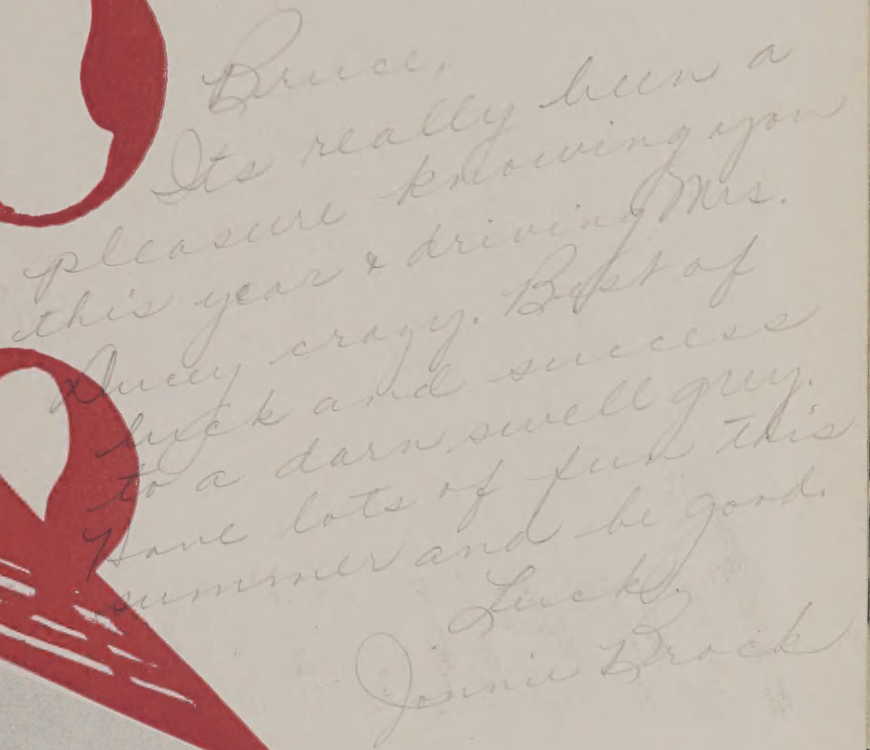 Bruce,
Its really been a
pleasure knowing you
this year & driving Mrs.
crazy. Best of
luck and success
to a darn swell guy.
Have lots of fun this
summer and be good.
Luck,
Brock